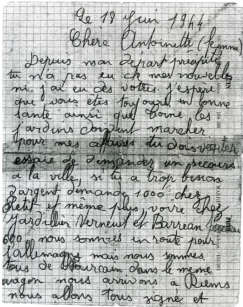 Le 18 Juin 1944
Chère Antoinette (femme)
Depuis mon départ précipité
tu n'a pas eu de mes nouvelles
ni j'ai eu des vottres j'espère
que vous êtes toujours en bonne
santé ainsi que tous les
jardins doivent marcher
pour mes affaires tu dois
essaie de demander un secours
à la ville, si tu a trop besoin
d'argent demande 1000 chez
Petit et même plus voire chez
Jardillier Verneuil et Barreau
600 nous sommes en route pour
l'allemagne mais nous sommes
tous de dans le même
wagon nous arrivons a Reims
nous allons tous signé et